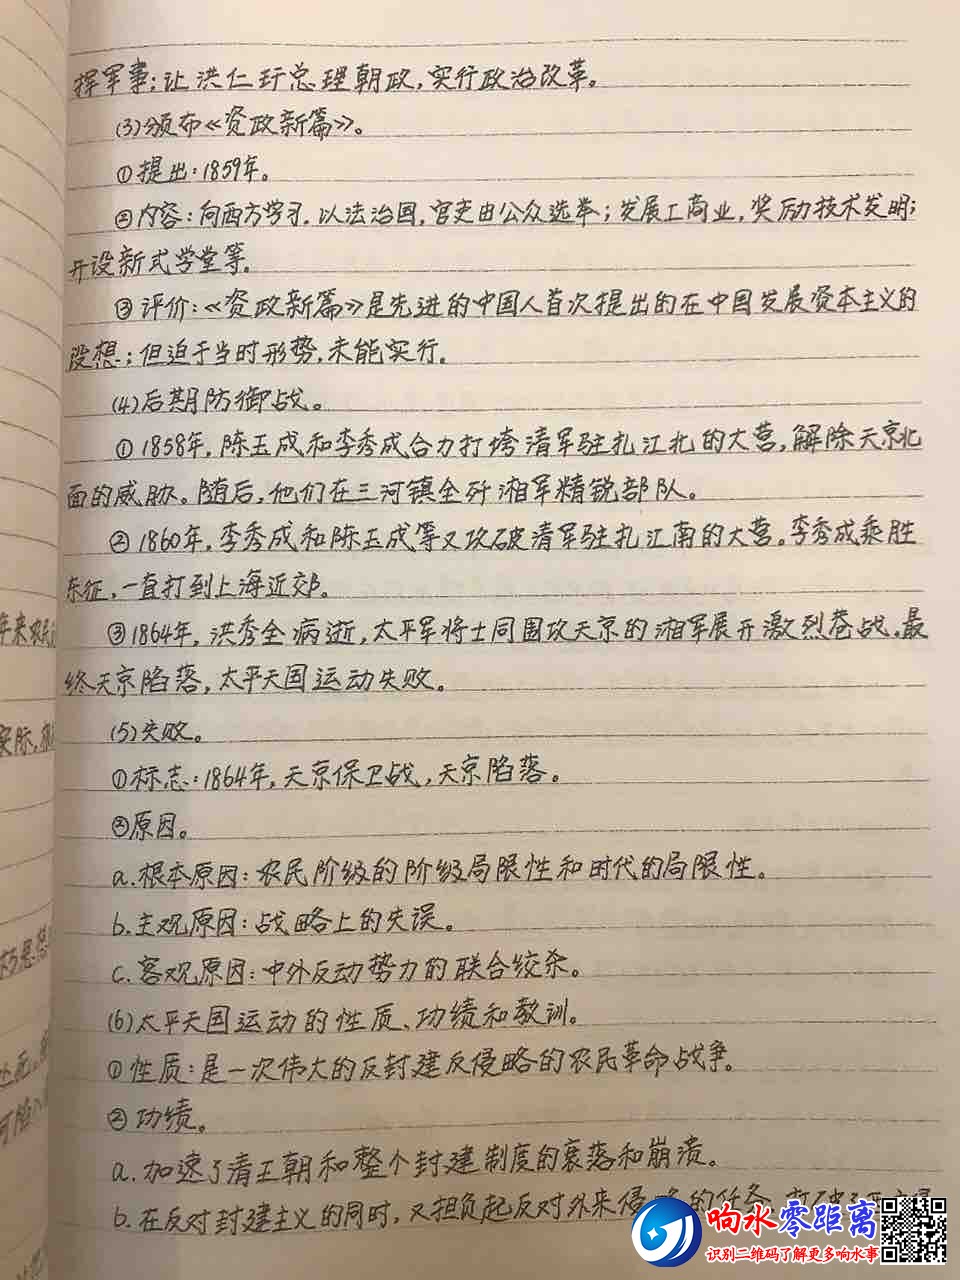 挥军事；让洪仁玕总理朝政，实行政治改革。
⑶颁布《资政新篇》。
①提出：1859年。
②内容：向西方学习，以法治国，官吏由公众选举；发展工商业，奖励技术发明；
开设新式学堂等。
③评价：《资政新篇》是先进的中国人首次提出的在中国发展资本主义的
设想；但迫于当时形势，未能实行。
⑷后期防御战。
①1858年，陈玉成和李秀成合力打垮清军驻扎江北的大营，解除天京北
面的威胁。随后，他们在三河镇全歼湘军精锐部队。
②1860年，李秀成和陈玉成等又攻破清军驻扎江南的大营。李秀成乘胜
东征，一直打到上海近郊。
③1864年，洪秀全病逝，太平军将士同围攻天京的湘军展开激烈巷战。最
终天京陷落，太平天国运动失败。
⑸失败。
①标志：1864年，天京保卫战，天京陷落。
②原因。
a.根本原因：农民阶级的阶级局限性和时代的局限性。
b.主观原因：战略上的失误。
c.客观原因：中外反动势力的联合绞杀。
⑹太平天国运动的性质、功绩和教训。
①性质：是一次伟大的反封建反侵略的农民革命战争。
②功绩。
a.加速了清王朝和整个封建制度的衰落和崩溃。
b.在反对封建主义的同时，又担负起反对外来侵略的任务，打破了
年来农民
实际，
思想
响水零距离
识别二维码了解更多响水事